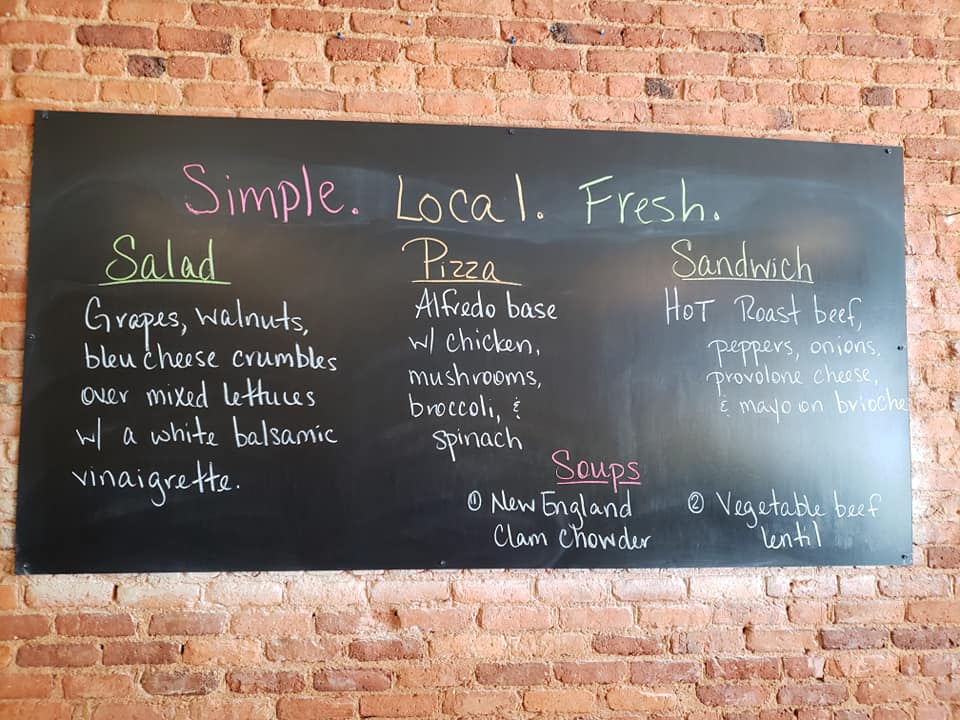 Simple. Local. Fresh.
Salad
Grapes, walnuts,
bleu cheese crumbles
over mixed lettuces
w/ a white balsamic
vinaigrette.
Pizza
Alfredo base
w/ chicken,
mushrooms,
broccoli, &
spinach
Sandwich
HOT Roast beef,
peppers, onions,
provolone cheese,
& mayo on brioche
Soups
① New England
Clam Chowder
② Vegetable beef
lentil